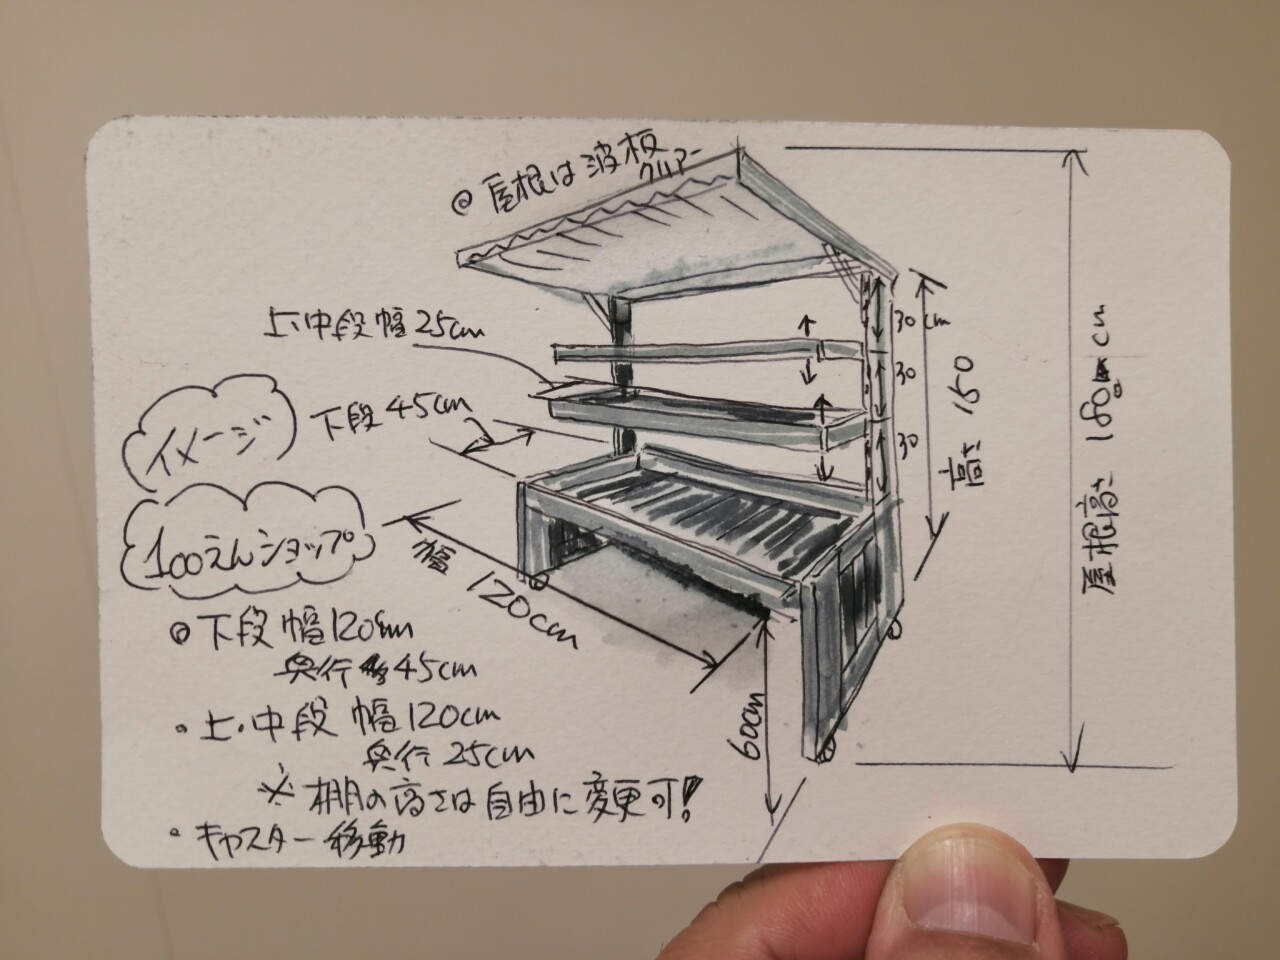 ◎屋根は波板
クリアー
上、中段幅25cm
下段45cm
イメージ
100えんショップ
幅 120cm
30 cm
30
30
高さ 150
屋根高さ 180cm
60cm
◎下段 幅120cm
奥行 45cm
・上・中段 幅120cm
奥行 25cm
※棚の高さは自由に変更可!
・キャスター移動